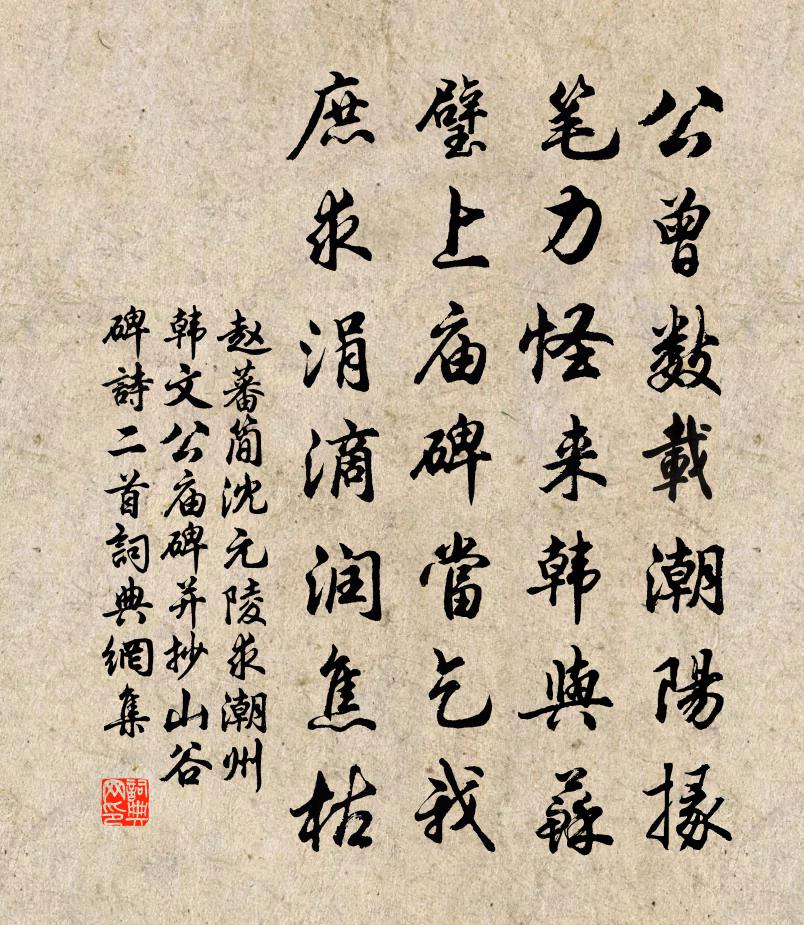 公曾数載潮陽掾
笔力怪来韩與蘇
壁上庙碑當乞我
庶求涓滴润焦枯
赵蕃简沈元陵求潮州
韩文公庙碑并抄山谷
碑詩二首詞典網集